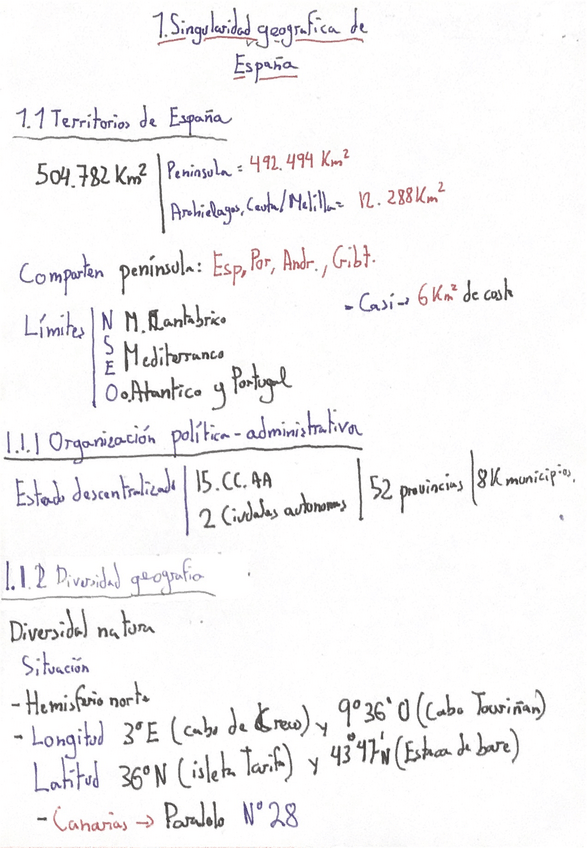 1. Singularidad geografica de
España
1.1 Territorios de España
504.782 Km² | Peninsula = 492.494 Km²
Archielagos, Ceuta/Melilla = 12.288 Km²
Comparten península: Esp, Por, Andr., Gibt.
- Casi → 6 Km² de costa
Límites | N M. Cantabrico
S
E Mediterraneo
O o. Atantico y Portugal
1.1.1 Organización política-administrativa
Estado descentralizado | 15. CC. AA | 52 provincias | 8K municipios.
2 Ciudades autonomas
1.1.2 Diversidad geografia
Diversidad natura
Situación
- Hemisferio norte
- Longitud 3° E (cabo de Creco) y 9° 36' O (Cabo Touriñan)
Latitud 36° N (isleta Tarifa) y 43° 47' N (Estaca de bare)
- Canarias → Paralolo N° 28